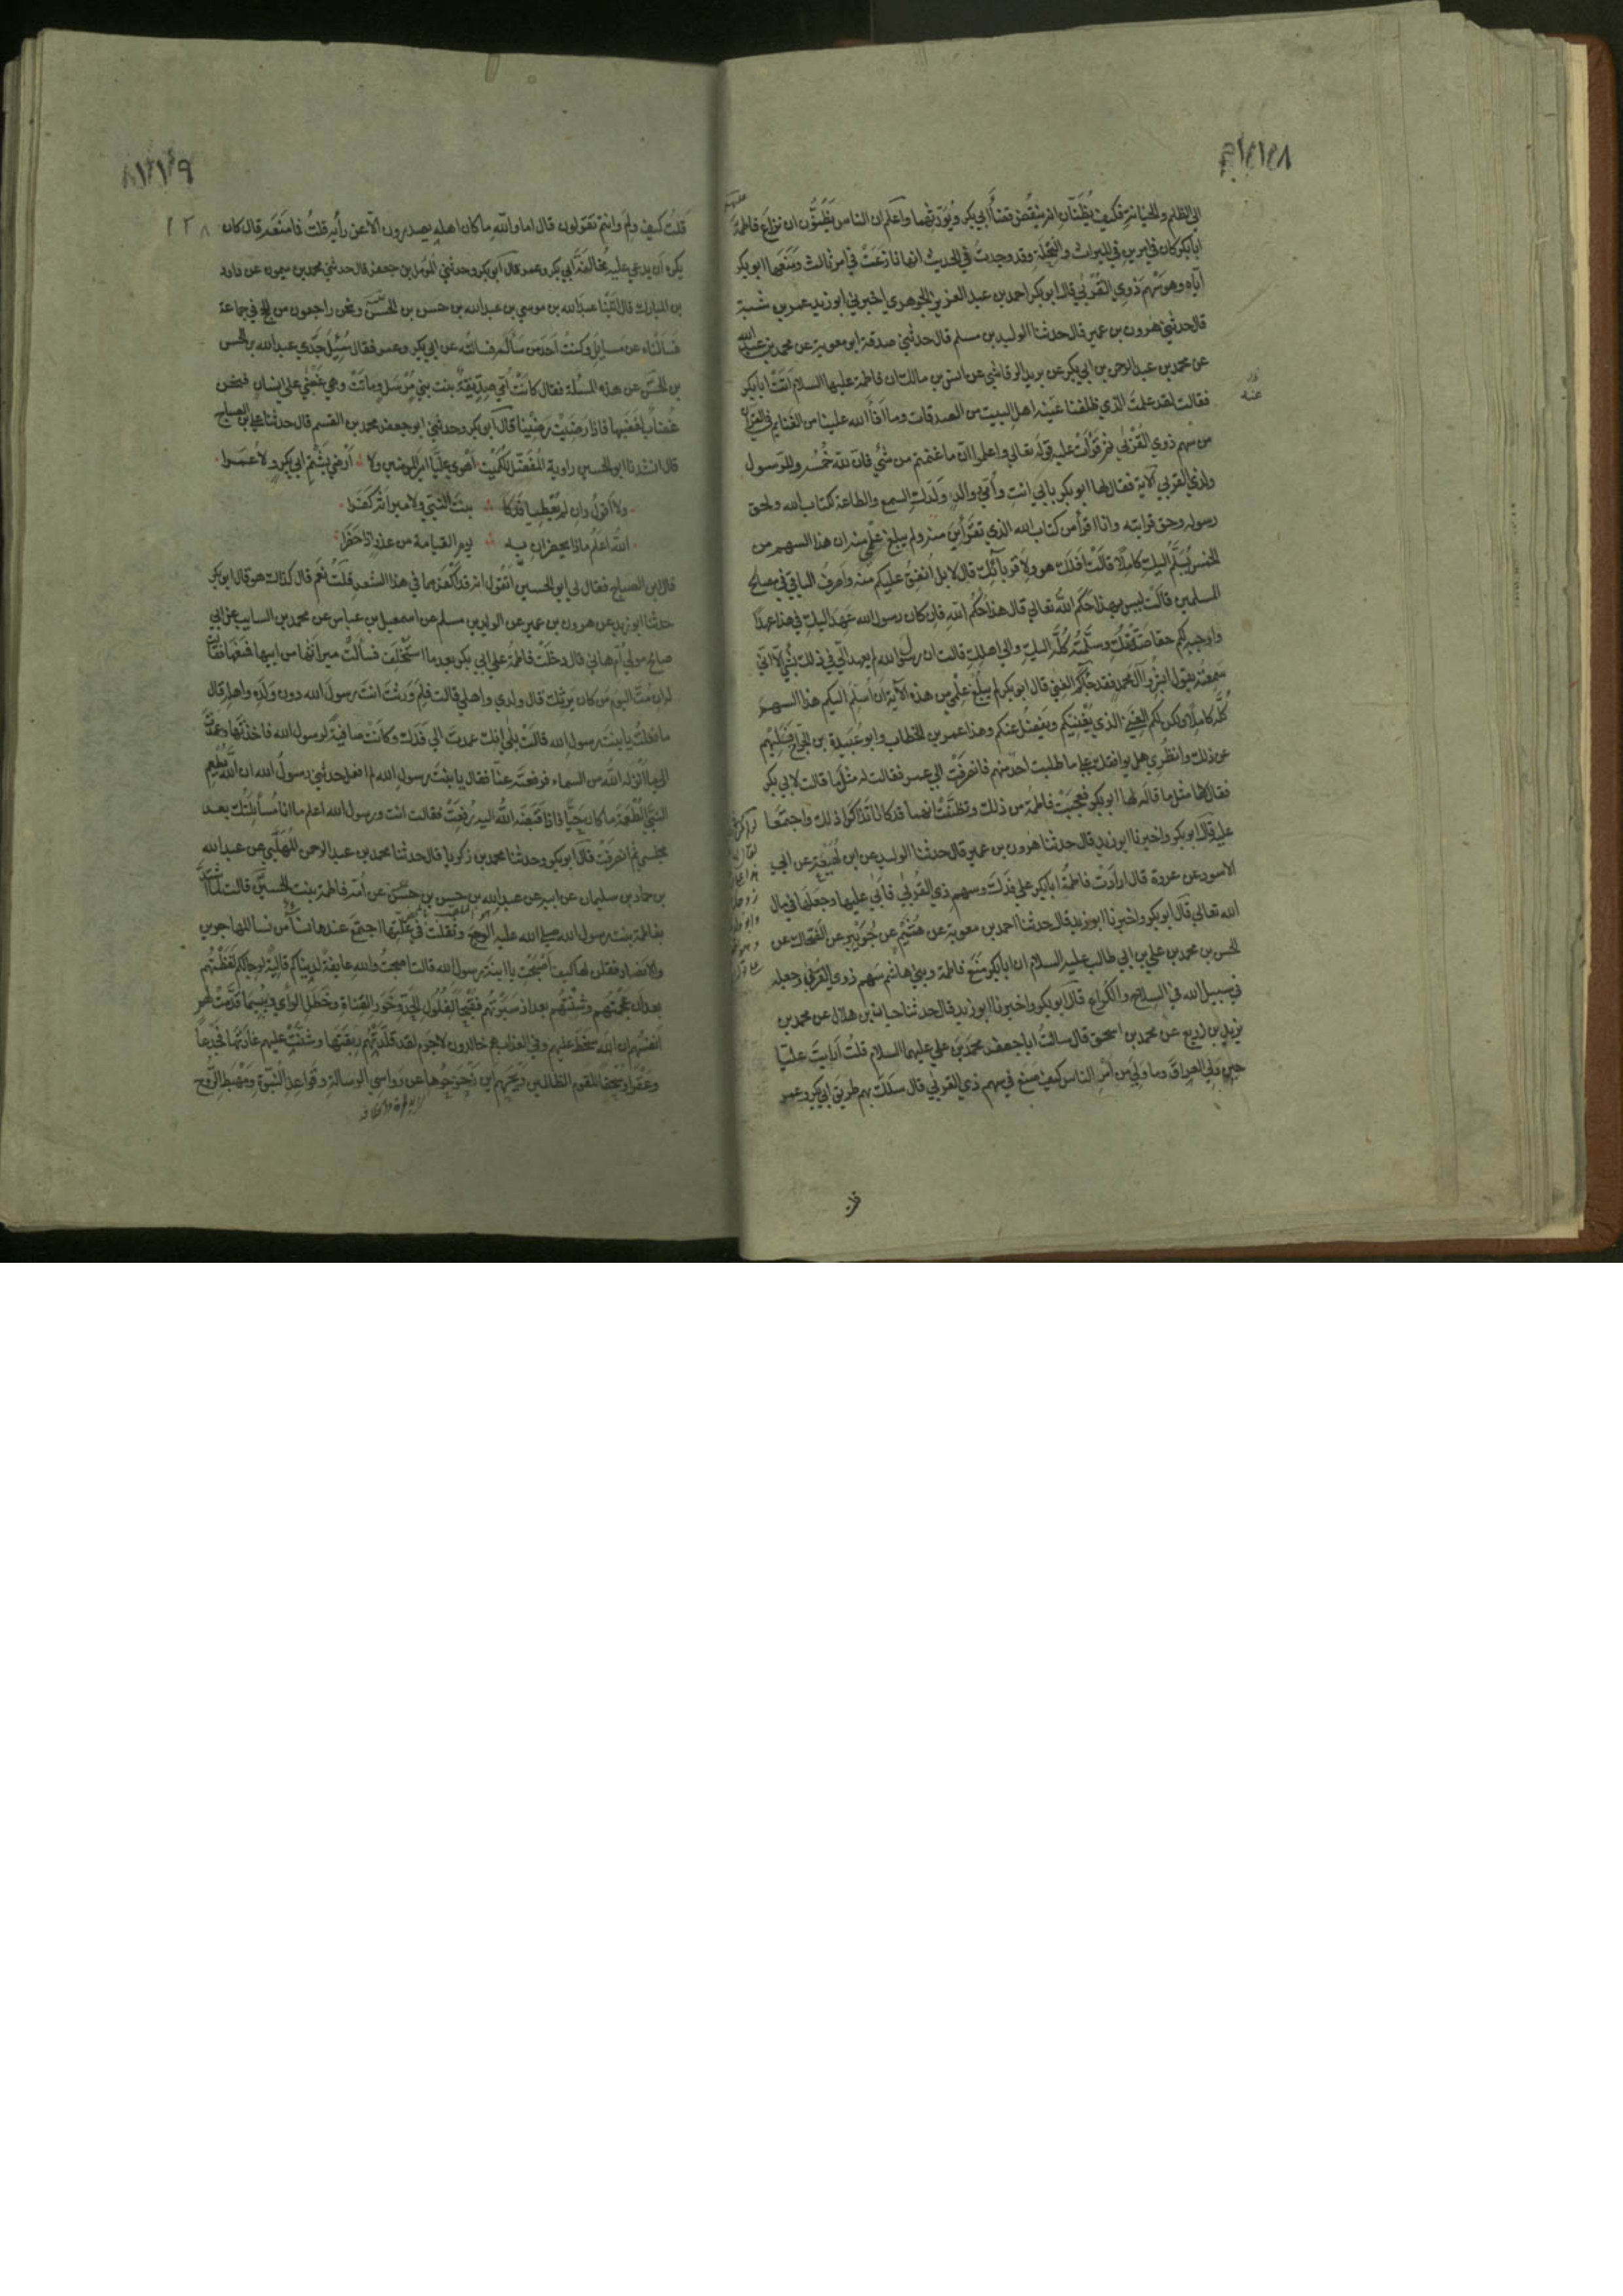 الي الظلم والخيانة فكيف يظنان انه ينقض قضاء ابي بكر ويورثهما واعلم ان الناس يظنون ان نزاع فاطمة
ابابكر كان في امرين في الميراث والنحلة وقد وجدت في الحديث انها نازعت في امر ثالث ومنعها ابو بكر
اياه وهو سهم ذوي القربي قال ابو بكر احمد بن عبد العزيز الجوهري اخبرني ابو زيد عمر بن شبة
قال حدثني هرون بن عمير قال حدثنا الوليد بن مسلم قال حدثني صدقة ابو معوية عن محمد بن عبد الله
عن محمد بن عبد الرحمن بن ابي بكر عن يزيد الرقاشي عن انس بن مالك ان فاطمة عليها السلام اتت ابا بكر
فقالت لقد علمت الذي ظلمتنا عنه اهل البيت من الصدقات وما افاء الله علينا من الغنايم في القرآن
من سهم ذوي القربي ثم قرأت عليه قوله تعالي واعلموا ان ما غنمتم من شيء فان لله خمسه وللرسول
ولذي القربي الآية فقال لها ابو بكر بابي انت وامي ووالد ولدك السمع والطاعة لكتاب الله ولحق
رسوله وحق قرابته وانا اقرأ من كتاب الله الذي تقرأين منه ولم يبلغ علمي منه ان هذا السهم من
الخمس يسلم اليك كاملا قالت افلك هو ولاقربائك قال لا بل انفق عليكم منه واصرف الباقي في مصالح
المسلمين قالت ليس هذا حكم الله تعالي قال هذا حكم الله فان كان رسول الله عهد اليك في هذا عهدا
واوجبه لكم حقا صدقتك وسلمته كله اليك والي اهلك قالت ان رسول الله لم يعهد الي في ذلك بشيء الا اني
سمعته يقول ابشروا آل محمد فقد جاءكم الغني قال ابو بكر لم يبلغ علمي من هذه الآية ان اسلم اليكم هذا السهم
كله كاملا ولكن لكم الغني الذي يغنيكم ويفضل عنكم وهذا عمر بن الخطاب وابو عبيدة بن الجراح فسليهم
عن ذلك وانظري هل يوافقك علي ما طلبت احد منهم فانصرفت الي عمر فقالت له مثل ما قالت لابي بكر
فقال لها مثل ما قاله لها ابو بكر فعجبت فاطمة من ذلك وتظنت انهما قد كانا تذاكرا ذلك واجتمعا
عليه قال ابو بكر واخبرنا ابو زيد قال حدثنا هرون بن عمير قال حدثنا الوليد عن ابن لهيعة عن ابي
الاسود عن عروة قال ارادت فاطمة ابابكر علي فدك وسهم ذي القربي فابي عليها وجعلها في مال
الله تعالي قال ابو بكر واخبرنا ابو زيد قال حدثنا احمد بن معوية عن هشيم عن جويبر عن الضحاك عن
الحسن بن محمد بن علي بن ابي طالب عليه السلام ان ابابكر منع فاطمة وبني هاشم سهم ذوي القربي وجعله
في سبيل الله في السلاح والكراع قال ابو بكر واخبرنا ابو زيد قال حدثنا حيان بن هلال عن محمد بن
يزيد بن ذريع عن محمد بن اسحق قال سالت ابا جعفر محمد بن علي عليهما السلام قلت ارايت عليا
حين ولي العراق وما ولي من امر الناس كيف صنع في سهم ذي القربي قال سلك بهم طريق ابي بكر وعمر
قلت كيف ولم وانتم تقولون قال اما والله ما كان اهله يصدرون الا عن رأيه قلت فما منعه قال كان
يكره ان يدعي عليه مخالفة ابي بكر وعمر قال ابو بكر وحدثني المؤمل بن جعفر قال حدثني محمد بن ميمون عن داود
بن المبارك قال اتينا عبد الله بن موسي بن عبد الله بن حسن بن الحسن ونحن راجعون من الحج في جماعة
فسالناه عن مسايل وكنت احد من ساله فسالته عن ابي بكر وعمر فقال سئل جدي عبد الله بن الحسن
بن الحسن عن هذه المسئلة فقال كانت امي صديقة بنت نبي مرسل وماتت وهي غضبي علي انسان فنحن
غضاب لغضبها فاذا رضيت رضينا قال ابو بكر وحدثني ابو جعفر محمد بن القسم قال حدثنا علي بن الصباح
قال انشدنا ابو الحسين راوية المفضل للكميت اهوي عليا امير المؤمنين ولا ∴ ارضي بشتم ابي بكر ولا عمرا
ولا اقول وان لم يعطيا فدكا ∴ بنت النبي ولا ميراثه كفرا
الله اعلم ماذا يحضران به ∴ يوم القيامة من عذر اذا حضرا
قال ابن الصباح فقال لي ابو الحسين اتقول انه قد اكفرهما في هذا الشعر قلت نعم قال كذاك هو قال ابو بكر
حدثنا ابو زيد عن هرون بن عمير عن الوليد بن مسلم عن اسمعيل بن عباس عن محمد بن السايب عن ابي
صالح مولي ام هاني قال دخلت فاطمة علي ابي بكر بعد ما استخلف فسألت ميراثها من ابيها فمنعها فقالت
له لئن مت اليوم من كان يرثك قال ولدي واهلي قالت فلم ورثت انت رسول الله دون ولده واهله قال
ما فعلت يا بنت رسول الله قالت بلي انك عمدت الي فدك وكانت صافية لرسول الله فاخذتها وعمدت
الي ما انزله الله من السماء فرفعته عنا فقال يا بنت رسول الله لم افعل حدثني رسول الله ان الله يطعم
النبي الطعمة ما كان حيا فاذا قبضه الله اليه رفعت فقالت انت ورسول الله اعلم ما انا بسائلتك بعد
مجلسي ثم انصرفت قال ابو بكر وحدثنا محمد بن زكريا قال حدثنا محمد بن عبد الرحمن المهلبي عن عبد الله
بن حماد بن سليمان عن ابيه عن عبد الله بن حسن بن حسن عن امه فاطمة بنت الحسين قالت لما اشتد
بفاطمة بنت رسول الله صلي الله عليه الوجع وثقلت في علتها اجتمع عندها نساء من نساء المهاجرين
والانصار فقلن لها كيف اصبحت يا ابنة رسول الله قالت اصبحت والله عايفة لدنياكم قالية لرجالكم لفظتهم
بعد ان عجمتهم وشنئتهم بعد ان سبرتهم فقبحا لفلول الحد وخور القناة وخطل الراي وبئسما قدمت لهم
انفسهم ان الله سخط عليهم وفي العذاب هم خالدون لا جرم لقد قلدتهم ربقتها وشننت عليهم غارتها فجدعا
وعقرا وسحقا للقوم الظالمين ويحهم اين زحزحوها عن رواسي الرسالة وقواعد النبوة ومهبط الروح